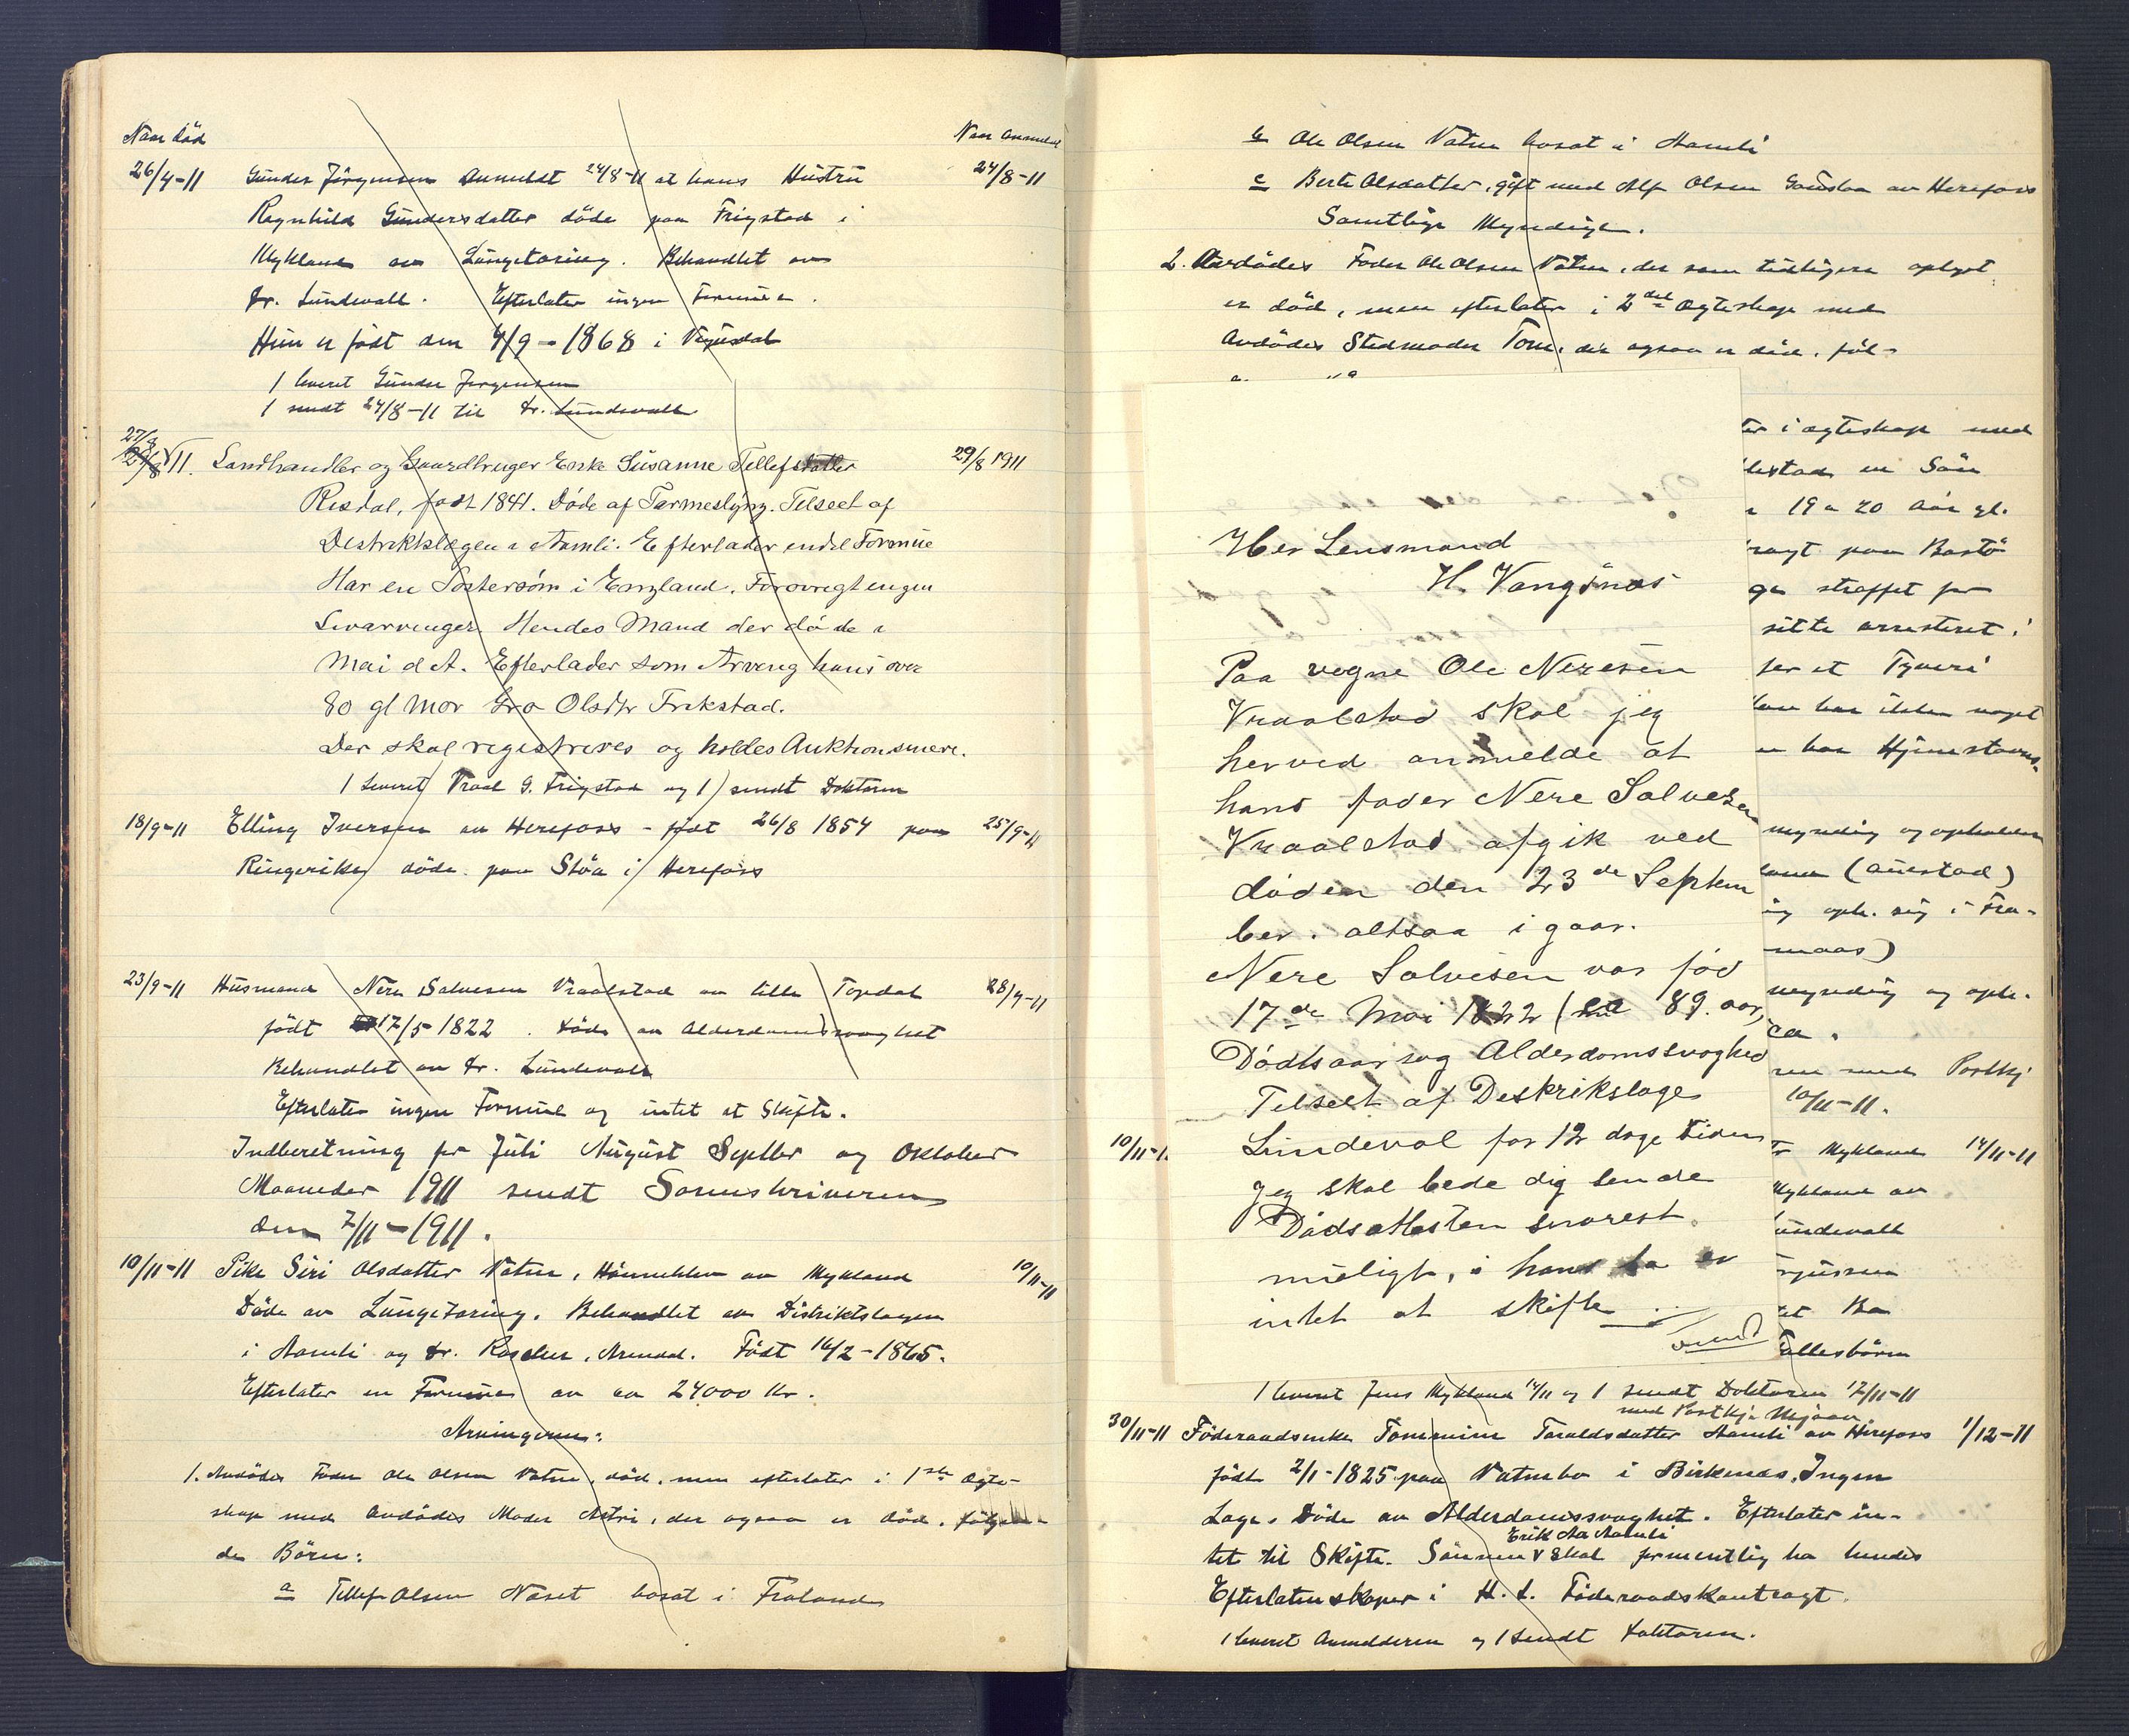 Naar död
Naar anmeldt
26/4-11 Gunder Jörgensen Anmeldt 24/8-11 at hans Hustru 24/8-11
Ragnhild Gundersdatter döde paa Frigstad i
Mykland av Lungetæring. Behandlet av
Dr. Lundevall. Efterlater ingen Formue.
Hun er født den 4/9-1868 i Vegusdal
1 leveret Gunder Jørgensen
1 sendt 24/8-11 til Dr. Lundevall
27/8 11. Landhandler og Gaardbruger Enke Susanne Tellefsdatter 29/8 1911
Risdal, født 1841. Døde af Tarmeslyng. Tilseet af
Destriktslægen i Aamli. Efterlader endel Formue
Har en Søstersøn i England. Forøvrigt ingen
Livarvinger. Hendes Mand der døde i
Mai d A. Efterlader som Arving hans over
80 gl Mor Gro Olsdtr Frikstad.
Der skal registreres og holdes Auktion senere.
1 Leveret Vraal G. Frigstad og 1 sendt Doktoren
18/9-11 Elling Iversen av Herefoss - født 26/8 1854 paa 25/9-11
Ringerike döde paa Stöa i Herefoss
23/9-11 Husmand Nere Salvesen Vraalstad av lille Topdal 28/9-11
født 17/5 1822. Döde av Alderdomssvaghet
Behandlet av Dr. Lundevall
Efterlater ingen Formue og intet at Skifte.
Indberetning for Juli August Septbr og Oktober
Maaneder 1911 sendt Sorenskriveren
den 7/11-1911.
10/11-11 Pike Siri Olsdatter Vatne, av Mykland 10/11-11
Döde av Lungetæring. Behandlet av Distriktslægen
i Aamli og Dr. Arendal. Født 16/2-1865.
Efterlater en Formue av ca 24000 Kr.
Arvingerne:
1. Avdödes Fader Ole Olsen Vatne, död, men efterlater i 1ste Ægte-
skap med Avdödes Moder Astri, der ogsaa er död, følgen-
de Börn:
a Tellef Olsen Næset bosat i Froland
b Ole Olsen Vatne bosat i Aamli
c Berte Olsdatter, gift med Alf Olsen av Herefoss
Samtlige Myndige.
2. Avdödes Fader Ole Olsen Vatne, der som tidligere oplyst
er död, men efterlater i 2det Ægteskap med
Avdödes Stedmoder Tone, der ogsaa er död, föl-
i ægteskap med
en Sön
19 a 20 Aar gl.
paa Bastö
straffet for
sitte arresteret i
et Tyveri
har ikke noget
har Hjemstavns-
Her Lensmand
H. Vangsnæs
Paa vegne Ole Neresen
Vraalstad skal jeg
herved anmelde at
hans fader Nere Salvesen
Vraalstad afgik ved
døden den 23de Septem
ber. altsaa i gaar.
Nere Salvesen var fød
17de Mai 1822 89. aar,
Dødsaarsag Alderdomssvaghed
Tilseet af Deskrikslage
Lindeval for 12 dage siden
Jeg skal bede dig sende
Dødsattesten snarest
mueligt, i
intet at skifte
sendt
myndig og opholder
(Auestad)
oph. sig i Fro-
myndig og oph.
med Postkj
10/11-11.
10/11-1
Mykland 14/11-11
Mykland av
undevall
1 leveret Jens Mykland 14/11 og 1 sendt Doktoren 17/11-11
med Postkj. Mjaan
30/11-11 Föderaadsenke Tomine Taraldsdatter Aamli av Herefoss 1/12-11
født 2/1-1825 paa Vatnebo i Birkenes. Ingen
Læge. Döde av Alderdomssvaghet. Efterlater in-
Erik Aa Aamli
tet til Skifte. Sönnen v skal formentlig ha hendes
Efterlatenskaper i H. t. Föderaadskontragt.
1 leveret Anmelderen og 1 sendt Doktoren.